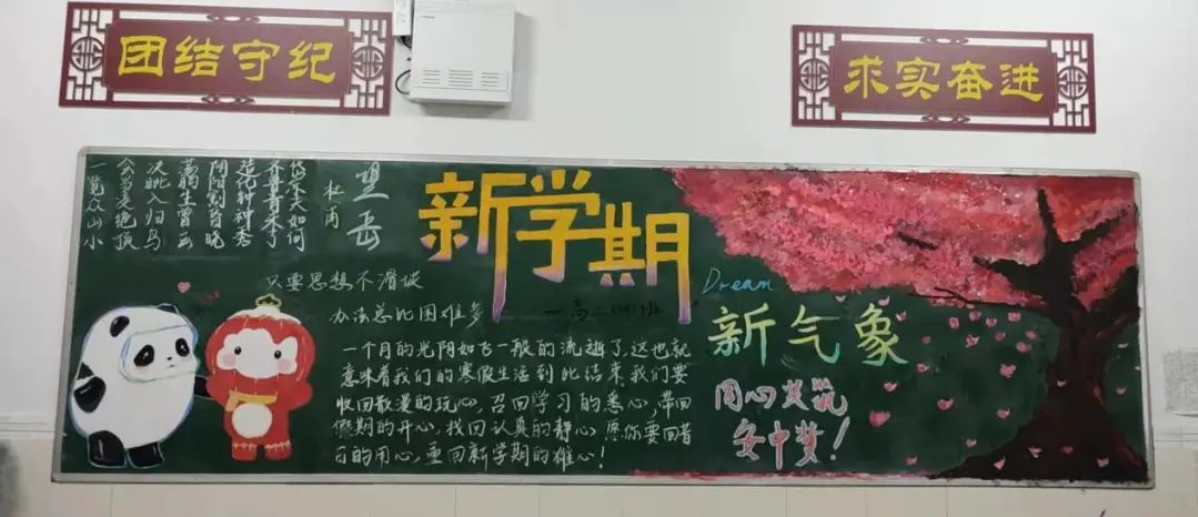 团结守纪
求实奋进
望岳
杜甫
岱宗夫如何
齐鲁青未了
造化钟神秀
阴阳割昏晓
荡胸生曾云
决眦入归鸟
会当凌绝顶
一览众山小
新学期
一高二
班
只要思想不滑坡
办法总比困难多
一个月的光阴如飞一般的流逝了,这也就
意味着我们的寒假生活到此结束,我们要
收回散漫的玩心,召回学习的悉心,带回
假期的开心,找回认真的静心,愿你要回昔
日的用心,重回新学期的雄心!
Dream
新气象
同心共筑
安中梦!